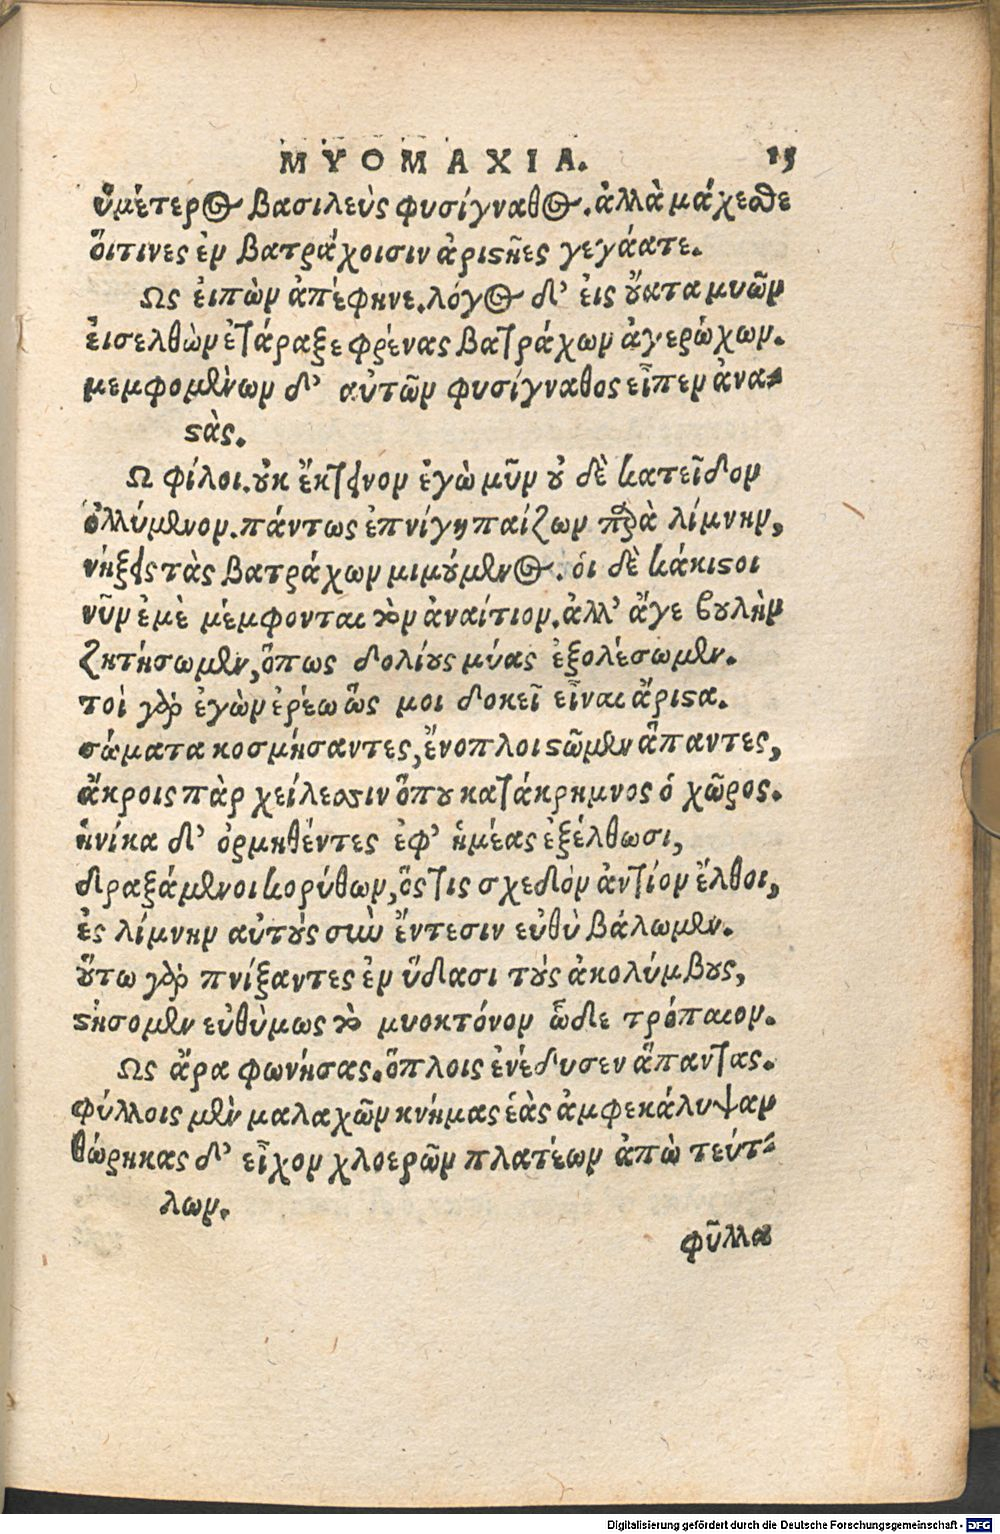 ΜΥΟΜΑΧΙΑ. 15
ὑμέτερος βασιλεὺς φυσίγναθος. ἀλλὰ μάχεσθε
ὅιτινες ἐν βατράχοισιν ἀριστῆες γεγάατε.
Ως ἐιπὼν ἀπέφηνε. λόγος δ' ἐις ὄυατα μυῶν
ἐισελθὼν ἐτάραξε φρένας βατράχων ἀγερώχων.
μεμφομένων δ' αὐτῶν φυσίγναθος εἶπεν ἀνα-
στὰς.
Ω φίλοι. οὐκ ἔκτεινον ἐγὼ μῦν οὐ δὲ κατεῖδον
ὀλλύμενον. πάντως ἐπνίγη παίζων παρὰ λίμνην,
νήξεις τὰς βατράχων μιμούμενος. ὁι δὲ κάκιστοι
νῦν ἐμὲ μέμφονται τὸν ἀναίτιον. ἀλλ' ἄγε βουλὴν
ζητήσωμεν, ὅπως δολίους μύας ἐξολέσωμεν.
τοὶ γὰρ ἐγὼν ἐρέω ὥς μοι δοκεῖ εἶναι ἄριστα.
σώματα κοσμήσαντες, ἔνοπλοι στῶμεν ἅπαντες,
ἄκροις πὰρ χείλεσσιν ὅπου κατάκρημνος ὁ χῶρος.
ἡνίκα δ' ὁρμηθέντες ἐφ' ἡμέας ἐξέλθωσι,
δραξάμενοι κορύθων, ὅς τις σχεδὸν ἀντίον ἔλθοι,
ἐς λίμνην αὐτοὺς σὺν ἔντεσιν εὐθὺ βάλωμεν.
οὕτω γὰρ πνίξαντες ἐν ὕδασι τοὺς ἀκολύμβους,
στήσομεν εὐθύμως τὸ μυοκτόνον ὧδε τρόπαιον.
Ως ἄρα φωνήσας. ὅπλοις ἐνέδυσεν ἅπαντας.
φύλλοις μὲν μαλαχῶν κνήμας ἑὰς ἀμφεκάλυψαν
θώρηκας δ' εἶχον χλοερῶν πλατέων ἀπὼ τεύτ-
λων.
φῦλλα
Digitalisierung gefördert durch die Deutsche Forschungsgemeinschaft - DFG